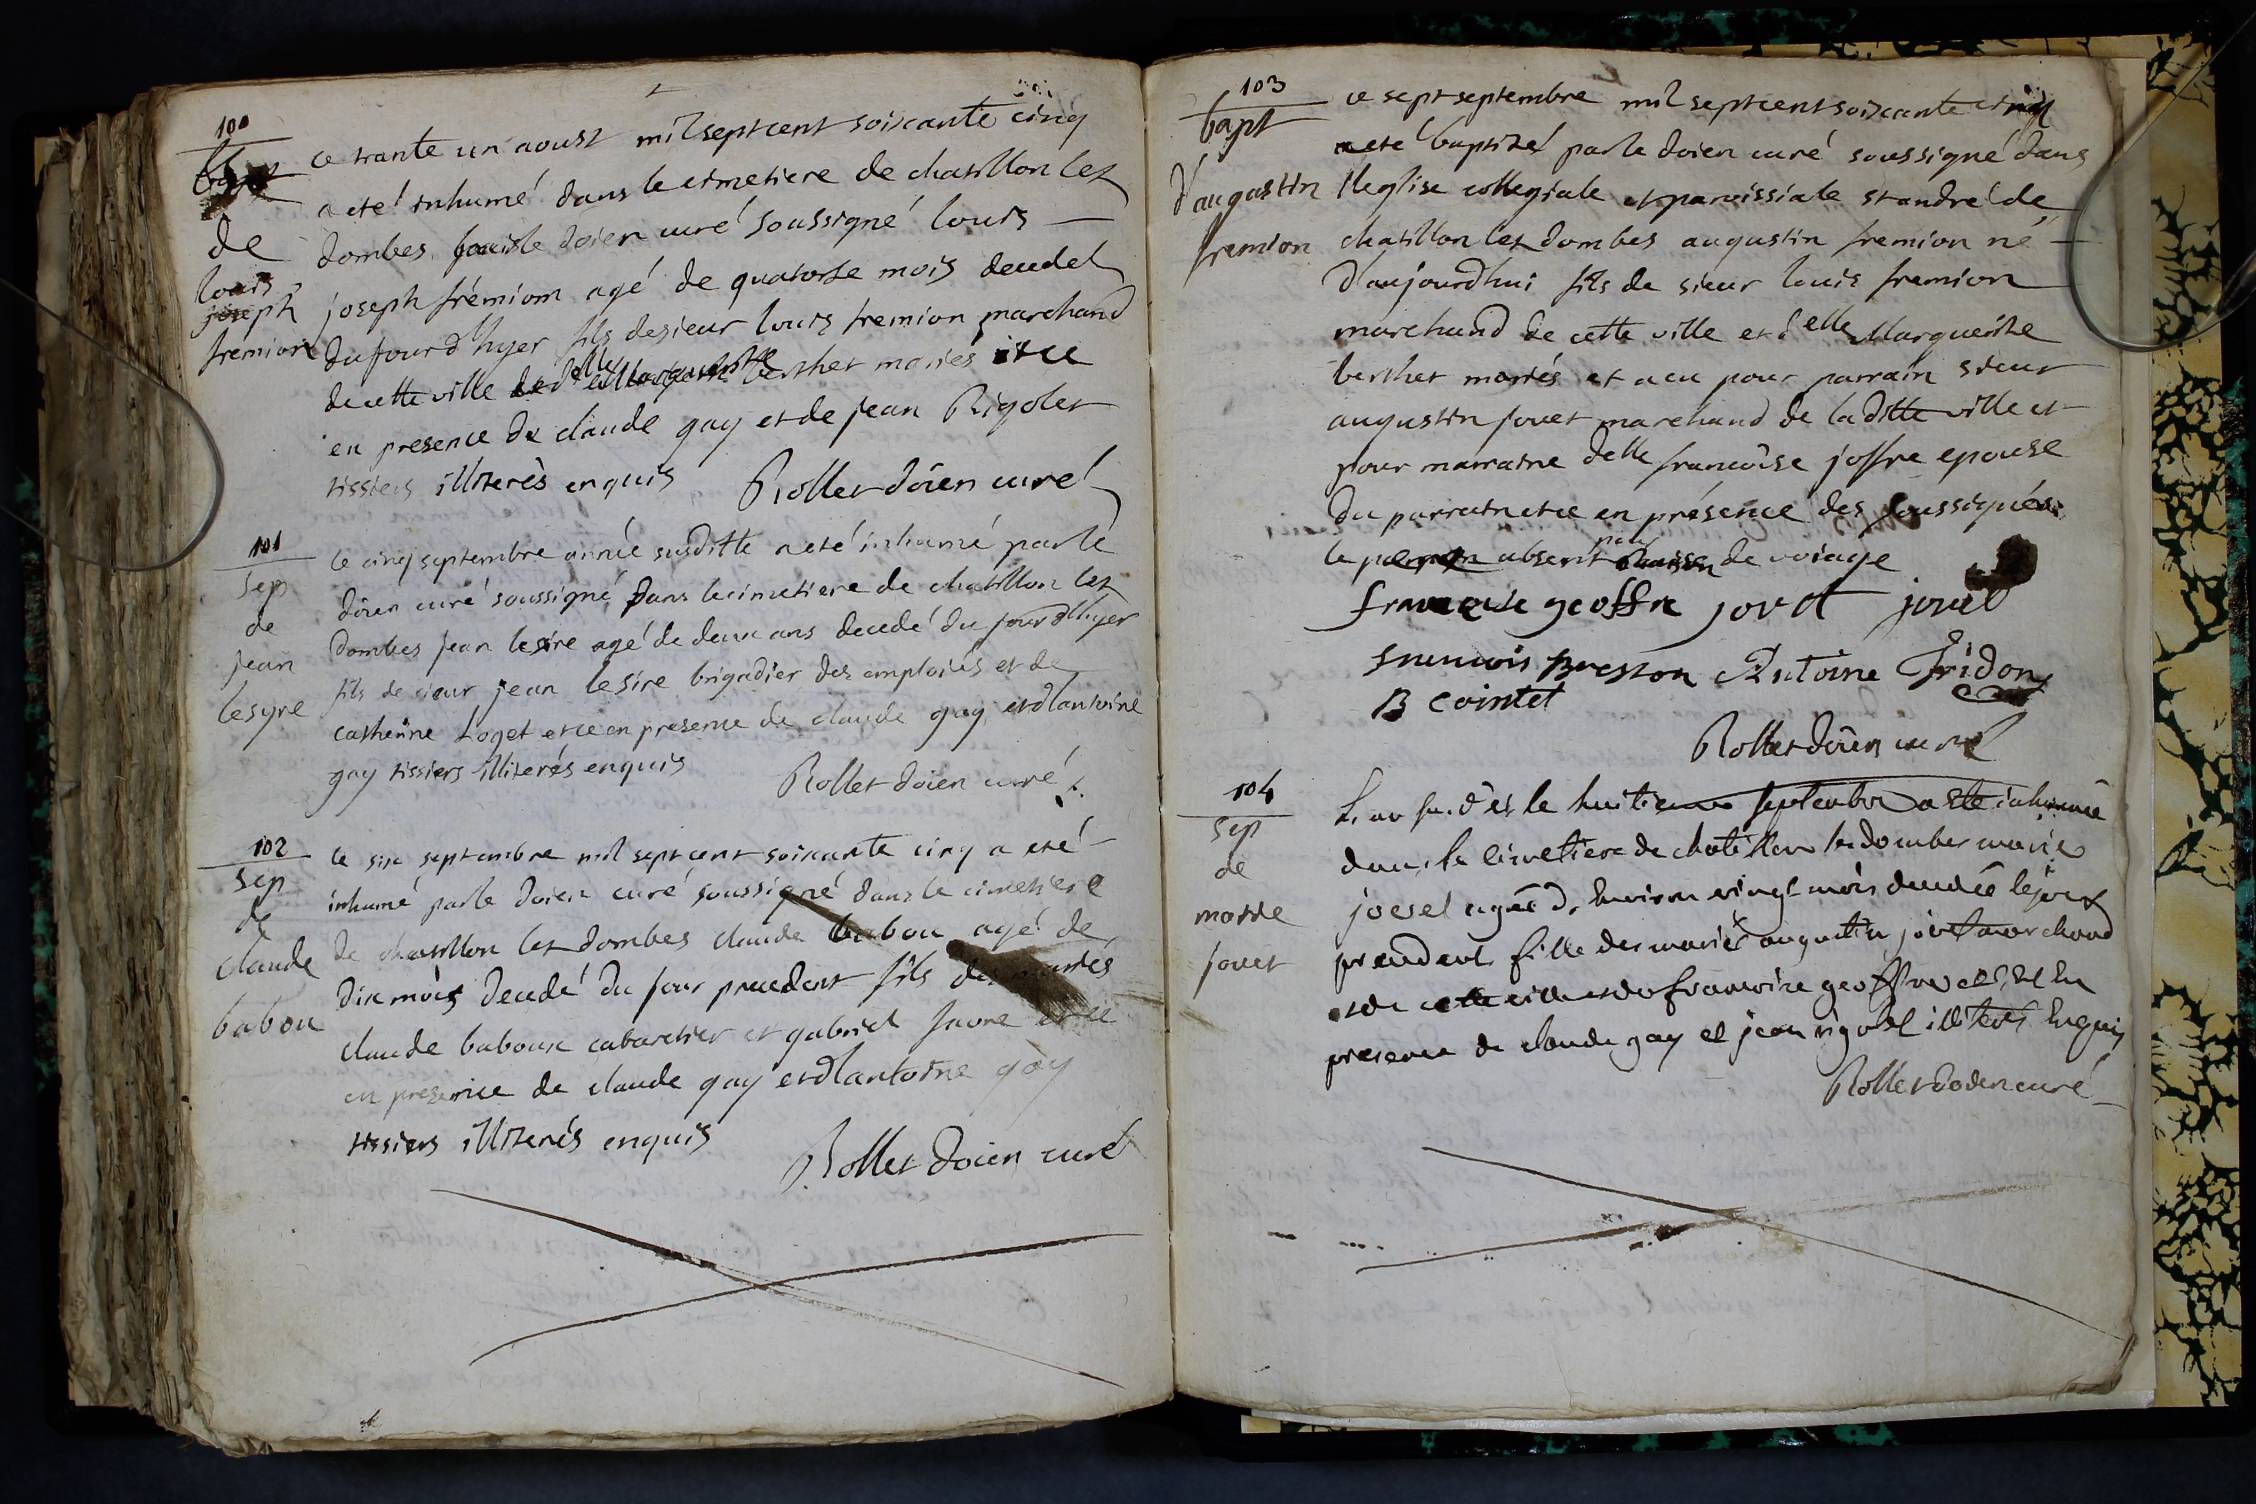 100
de
louis
joseph
fremion
ce trante un aoust mil sept cent soixante cinq
a eté inhumé dans le cimetiere de chatillon lez
dombes par le doien curé soussigné louis
joseph frémiom agé de quatorse mois decedel
du jourd'hyer fils de sieur louis fremion marchand
de cette ville et de delle Marguerite berthet mariés et ce
en presence de claude gay et de jean Rigolet
tissiers illiterès enquis Rollet doien curé
101
sep
de
jean
lesyre
le cinq septembre année susditte a eté inhumé par le
doien curé soussigné dans le cimetiere de chatillon lez
dombes jean lesire agé de deux ans decedé du jourd'hyer
fils de sieur jean lesire brigadier des emploiés et de
catherine Loget et ce en presence de claude gay et d'antoine
gay tissiers illiterés enquis Rollet doien curé
102
sep
de
claude
babou
le six septembre mil sept cent soixante cinq a eté
inhumé par le doien curé soussigné dans le cimetiere
de chatillon lez dombes claude babou agé de
dix mois decedé du jour precedent fils des mariés
claude baboux cabaretier et gabriel favre et ce
en presence de claude gay et d'antoine gay
tissiers illiterés enquis Rollet doien curé
103
bapt
d'augustin
fremion
ce sept septembre mil sept cent soixante cinq
a eté baptizé par le doien curé soussigné dans
l'eglise collegiale et paroissiale st andré de
chatillon lez dombes augustin fremion né
d'aujourd'hui fils de sieur louis fremion
marchand de cette ville et delle Marguerite
berthet mariés et a eu pour parrain sieur
augustin jouet marchand de la ditte ville et
pour marraine delle francoise joffre epouse
du parrain et ce en présence des soussignés
le absent pour raison de voiage
francoise geoffre jovet jouet
francois Breston Antoine Fridon
B Cointet
Rollet doien curé
104
sep
de
marie
jouet
L'an su. d'et le huitieme septembre a eté inhumée
dans le cimetiere de chatillon les dombes marie
joesel agée d'Environ vingt mois decedée le jour
precedent fille des mariés augustin jovet marchand
de cette ville et de francoise geoffre et ce En
presence de claude gay et jean rigolet illiterés Enquis
Rollet doien curé